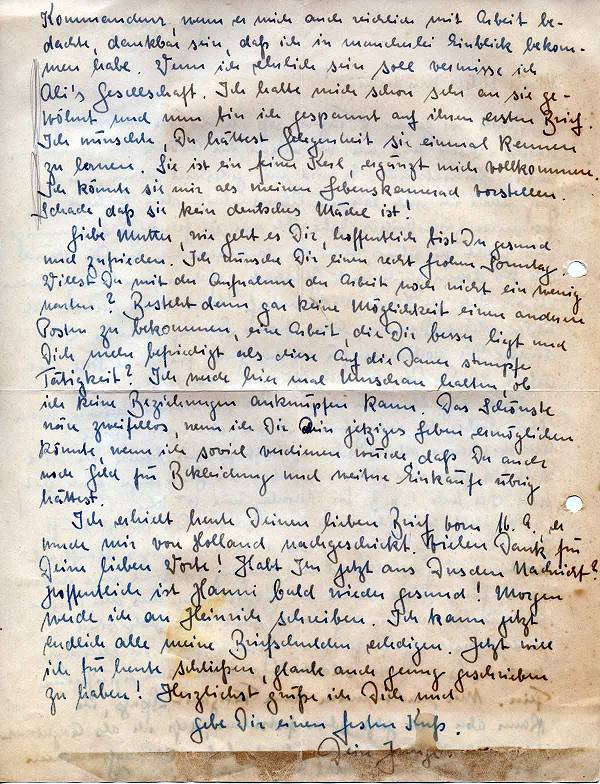 Kommandeur, wenn er mich auch reichlich mit Arbeit be-
dachte, dankbar sein, daß ich in mancherlei Einblick bekom-
men habe. Wenn ich ehrlich sein soll vermisse ich
Ali's Gesellschaft. Ich hatte mich schon sehr an sie ge-
wöhnt und nun bin ich gespannt auf ihren ersten Brief.
Ich wünschte, Du hättest Gelegenheit sie einmal kennen
zu lernen. Sie ist ein feiner Kerl, ergänzt mich vollkommen.
Ich könnte sie mir als meinen Lebenskamerad vorstellen.
Schade, daß sie kein deutsches Mädel ist!
Liebe Mutter, wie geht es Dir, hoffentlich bist Du gesund
und zufrieden. Ich wünsche Dir einen recht frohen Sonntag.
Willst Du mit der Aufnahme der Arbeit noch nicht ein wenig
warten? Besteht denn gar keine Möglichkeit einen anderen
Posten zu bekommen, eine Arbeit, die Dir besser liegt und
Dich mehr befriedigt als diese auf die Dauer stumpfe
Tätigkeit? Ich werde hier mal Umschau halten, ob
ich keine Beziehungen anknüpfen kann. Das Schönste
wäre zweifellos, wenn ich Dir Dein jetziges Leben ermöglichen
könnte, wenn ich soviel verdienen würde, daß Du auch
noch Geld für Bekleidung und weitere Einkäufe übrig
hättest.
Ich erhielt heute Deinen lieben Brief vom 16. 9. er
wurde mir von Holland nachgeschickt. Vielen Dank für
Deine lieben Worte! Habt Ihr jetzt aus Dresden Nachricht?
Hoffentlich ist Hanni bald wieder gesund! Morgen
werde ich an Heinrich schreiben. Ich kann jetzt
endlich alle meine Briefschulden erledigen. Jetzt will
ich für heute schließen, glaube auch genug geschrieben
zu haben! Herzlichst grüße ich Dich und
gebe Dir einen festen Kuß.
Dein Junge